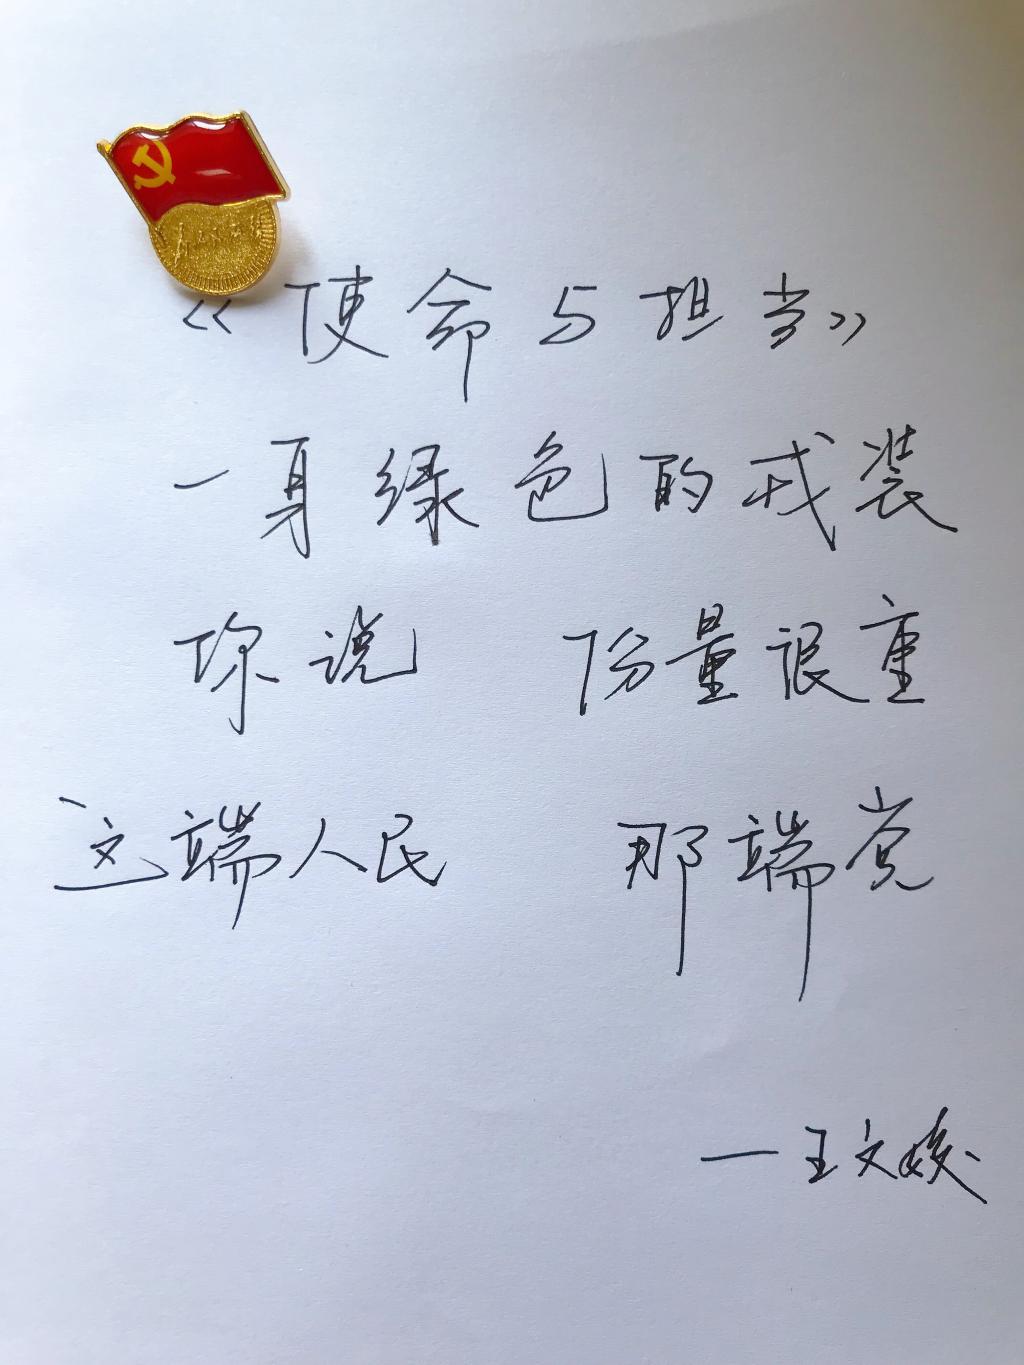 《使命与担当》
一身绿色的戎装
你说 份量很重
这端人民 那端党
—王文姣